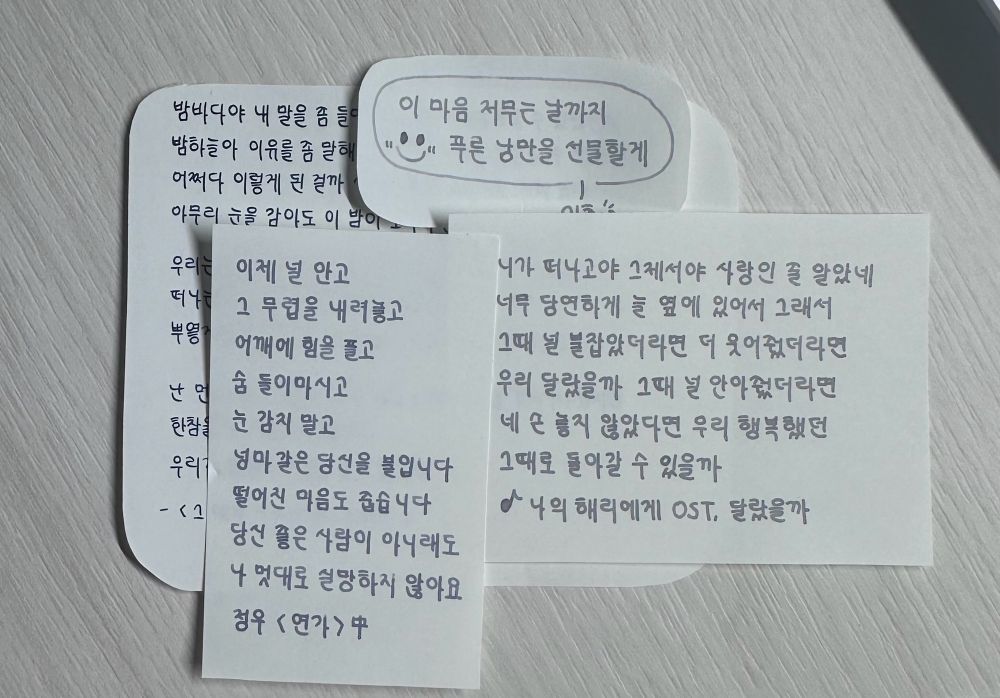 밤바다야 내 말을 좀
밤하늘아 이유를 좀 말해
어쩌다 이렇게 된 걸까
아무리 눈을 감아도 이 밤이
우리는
떠나는
난 먼
한참을
- <그
이 마음 저무는 날까지
푸른 낭만을 선물할게
이제 널 안고
그 무렵을 내려놓고
어깨에 힘을 풀고
숨 들이마시고
눈 감지 말고
넝마같은 당신을 붙입니다
떨어진 마음도 줍습니다
당신 좋은 사람이 아니래도
나 멋대로 실망하지 않아요
정우 <연가> 中
니가 떠나고야 그제서야 사랑인 줄 알았네
너무 당연하게 늘 옆에 있어서 그래서
그때 널 붙잡았더라면 더 웃어줬더라면
우리 달랐을까 그때 널 안아줬더라면
네 손 놓지 않았다면 우리 행복했던
그때로 돌아갈 수 있을까
♪ 나의 해리에게 OST, 달랐을까